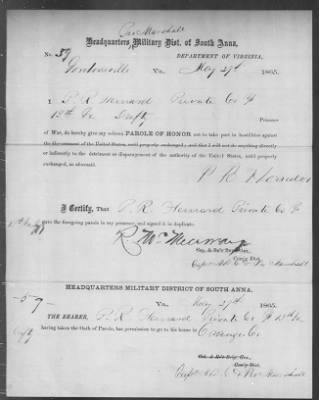 Pro Marshall
Headquarters Military Dist. of South Anna,
DEPARTMENT OF VIRGINIA,
No. 59
Gordonsville Va. May 27th 1865.
I P. R. Private Co F
13th Va Prisoner
of War, do hereby give my solemn PAROLE OF HONOR not to take part in hostilities against
the Government of the United States, until properly exchanged; and that I will not do anything directly
or indirectly to the detriment or disparagement of the authority of the United States, until properly
exchanged, as aforesaid.
P R
I Certify, That P. R. Private Co F
gave the foregoing parole in my presence, and signed it in duplicate.
R.
Comdg Dist.
Capt Marshall
HEADQUARTERS MILITARY DISTRICT OF SOUTH ANNA.
-59- Va. May 27th 1865.
THE BEARER, P. R. Private Co F 13th Va
having taken the Oath of Parole, has permission to go to his home in Orange Co
Comdg Dist.
Capt Marshall